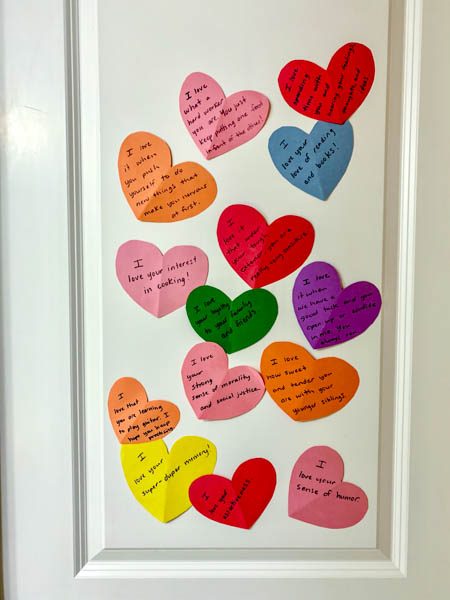 I love
spending
time with
you and
hearing your feelings,
thoughts, and
I love
what a
hard worker
you are you just
keep putting one foot
infront of the other!
I
love your
love of reading
and books!
I love
it when
you push
yourself to do
new things that
make you nervous
at first.
I
love it
that under
your tough
exterior you are
really very sensitive.
I
love your interest
in cooking!
I love
your loyalty
to your family
and friends
I love
it when
we have a
good talk and you
open up or confide
in me. You
always can
I love
your
strong
sense of morality
and social justice.
I love
how sweet
and tender you
are with your
younger siblings
I
love that
you are learning
to play guitar. I
hope you keep
practicing
I
love your
super-duper memory!
I love your
assertiveness
I
love your
sense of humor